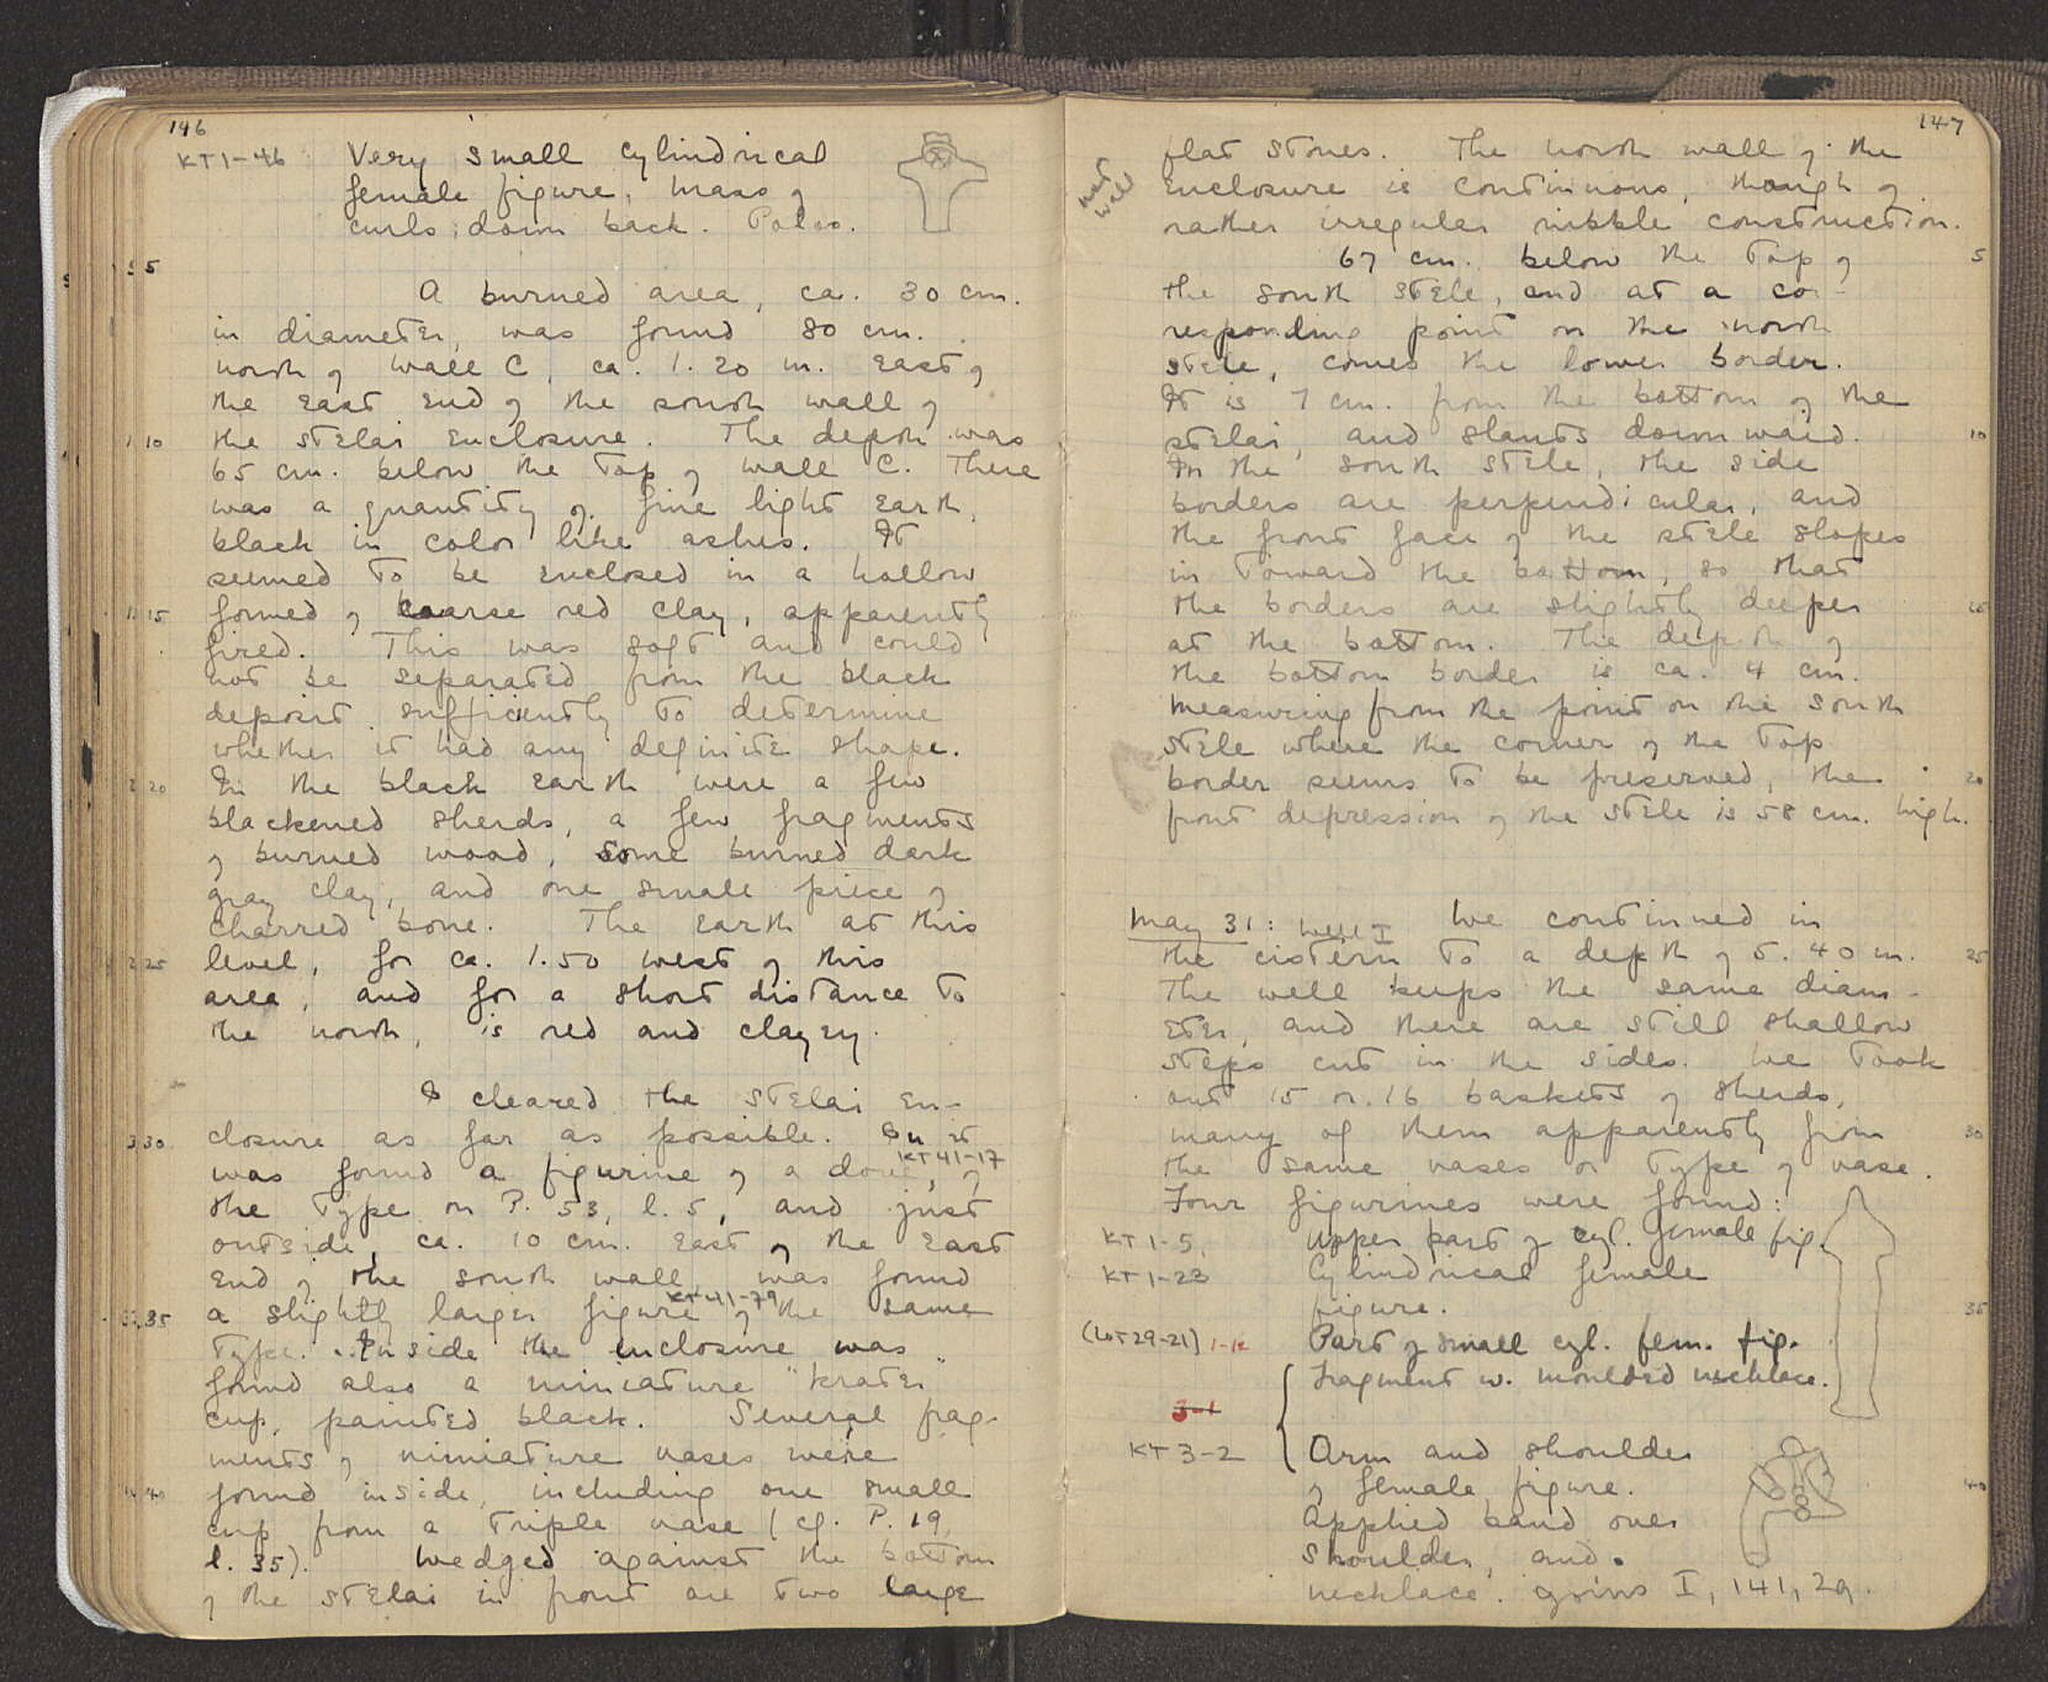 146
KT1-46 Very small cylindrical
female figure, mass of
curls down back. Polos.
5
A burned area, ca. 30 cm.
in diameter, was found 80 cm.
north of wall C, ca. 1.20 m. east of
the east end of the south wall of
10 the stelai enclosure. The depth was
65 cm. below the top of wall C. There
was a quantity of fine light earth,
black in color like ashes. It
seemed to be enclosed in a hollow
15 formed of coarse red clay, apparently
fired. This was soft and could
not be separated from the black
deposit sufficiently to determine
whether it had any definite shape.
20 In the black earth were a few
blackened sherds, a few fragments
of burned wood, some burned dark
gray clay, and one small piece of
charred bone. The earth at this
25 level, for ca. 1.50 west of this
area, and for a short distance to
the north, is red and clayey.
I cleared the stelai en-
30 closure as far as possible. In it
KT41-17
was found a figurine of a dove, of
the type on P. 53, l. 5, and just
outside, ca. 10 cm. east of the east
end of the south wall, was found
KT41-79
35 a slightly larger figure of the same
type. Inside the enclosure was
found also a miniature "krater"
cup, painted black. Several frag-
ments of miniature vases were
40 found inside, including one small
cup from a triple vase (cf. P. 19,
l. 35). Wedged against the bottom
of the stelai in front are two large
147
flat stones. The north wall of the
enclosure is continuous, though of
rather irregular rubble construction.
67 cm. below the top of
5
the south stele, and at a cor-
responding point on the north
stele, comes the lower border.
It is 7 cm. from the bottom of the
stelai, and slants downward.
10
In the south stele, the side
borders are perpendicular, and
the front face of the stele slopes
in toward the bottom, so that
the borders are slightly deeper
15
at the bottom. The depth of
the bottom border is ca. 4 cm.
Measuring from the point on the south
stele where the corner of the top
border seems to be preserved, the
20
front depression of the stele is 58 cm. high.
May 31: Well I We continued in
the cistern to a depth of 5.40 m.
25
The well keeps the same diam-
eter, and there are still shallow
steps cut in the sides. We took
out 15 or 16 baskets of sherds,
many of them apparently from
30
the same vases or type of vase.
Four figurines were found:
KT1-5, Upper part of cyl. female fig.
KT1-23 Cylindrical female
figure.
35
(LOT29-21) Part of small cyl. fem. fig.
Fragment w. moulded necklace.
3-1
KT3-2 Arm and shoulder
of female figure.
40
Applied band over
shoulder, and
necklace. Joins I, 141, 29.